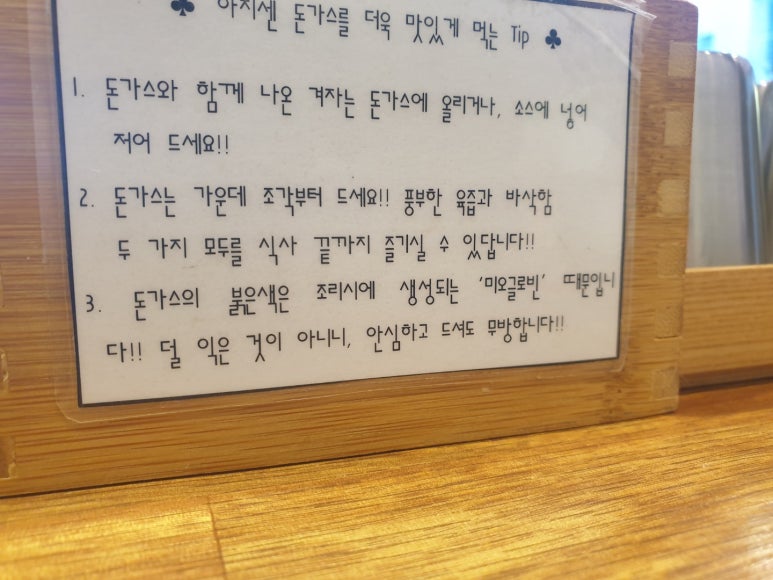 ♣ 아지센 돈가스를 더욱 맛있게 먹는 Tip ♣
1. 돈가스와 함께 나온 겨자는 돈가스에 올리거나, 소스에 넣어
저어 드세요!!
2. 돈가스는 가운데 조각부터 드세요!! 풍부한 육즙과 바삭함
두 가지 모두를 식사 끝까지 즐기실 수 있답니다!!
3. 돈가스의 붉은색은 조리시에 생성되는 '미오글로빈' 때문입니
다!! 덜 익은 것이 아니니, 안심하고 드셔도 무방합니다!!